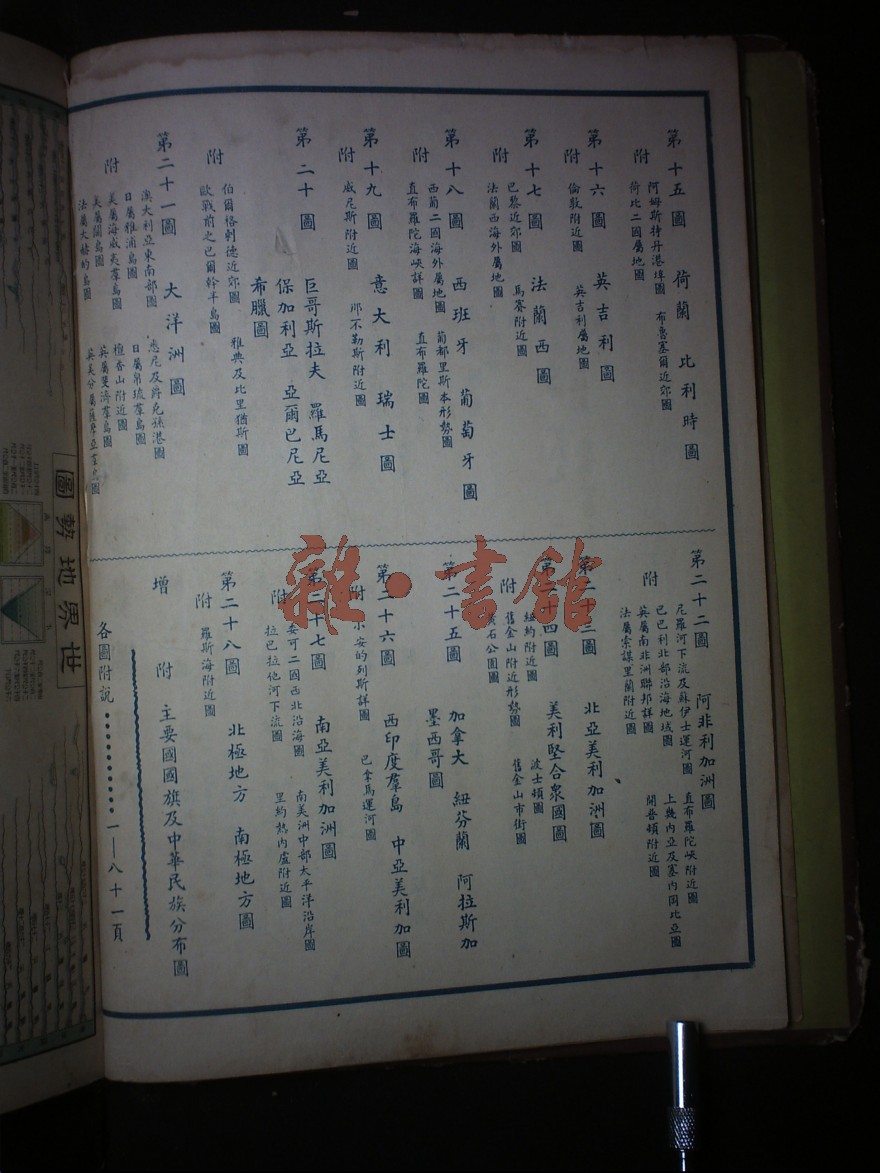 第十五圖 荷蘭 比利時圖
附 阿姆斯特丹港埠圖 布魯塞爾近郊圖
荷比二國屬地圖
第十六圖 英吉利圖
附 倫敦附近圖 英吉利屬地圖
第十七圖 法蘭西圖
附 巴黎近郊圖 馬賽附近圖
法蘭西海外屬地圖
第十八圖 西班牙 葡萄牙圖
附 西葡二國海外屬地圖 葡都里斯本形勢圖
直布羅陀海峽詳圖 直布羅陀圖
第十九圖 意大利 瑞士圖
附 威尼斯附近圖 那不勒斯附近圖
第二十圖 巨哥斯拉夫 羅馬尼亞
保加利亞 亞爾巴尼亞
希臘圖
附 伯爾格剌德近郊圖 雅典及比里猶斯圖
歐戰前之巴爾幹半島圖
第二十一圖 大洋洲圖
附 澳大利亞東南部圖 悉尼及孖克孫港圖
日屬雅浦島圖 日屬帛琉羣島圖
美屬海威夷羣島圖 檀香山附近圖
美屬關島圖 英屬斐濟羣島圖
法屬大赫的島圖 英美分屬薩摩亞羣島圖
第二十二圖 阿非利加洲圖
附 尼羅河下流及蘇伊士運河圖 直布羅陀峽附近圖
巴巴利北部沿海地域圖 上幾內亞及塞內岡比亞圖
英屬南非洲聯邦詳圖 開普頓附近圖
法屬索謀里蘭附近圖
第二十三圖 北亞美利加洲圖
第二十四圖 美利堅合衆國圖
附 紐約附近圖 波士頓圖
舊金山附近形勢圖 舊金山市街圖
黃石公園圖
第二十五圖 加拿大 紐芬蘭 阿拉斯加
墨西哥圖
第二十六圖 西印度羣島 中亞美利加圖
附 小安的列斯詳圖 巴拿馬運河圖
第二十七圖 南亞美利加洲圖
附 委可二國西北沿海圖 南美洲中部太平洋沿岸圖
拉巴拉他河下流圖 里約熱內盧附近圖
第二十八圖 北極地方 南極地方圖
附 羅斯海附近圖
增附 主要國國旗及中華民族分布圖
各圖附說••••••••••一—八十一頁
雜·書館
世界地勢圖